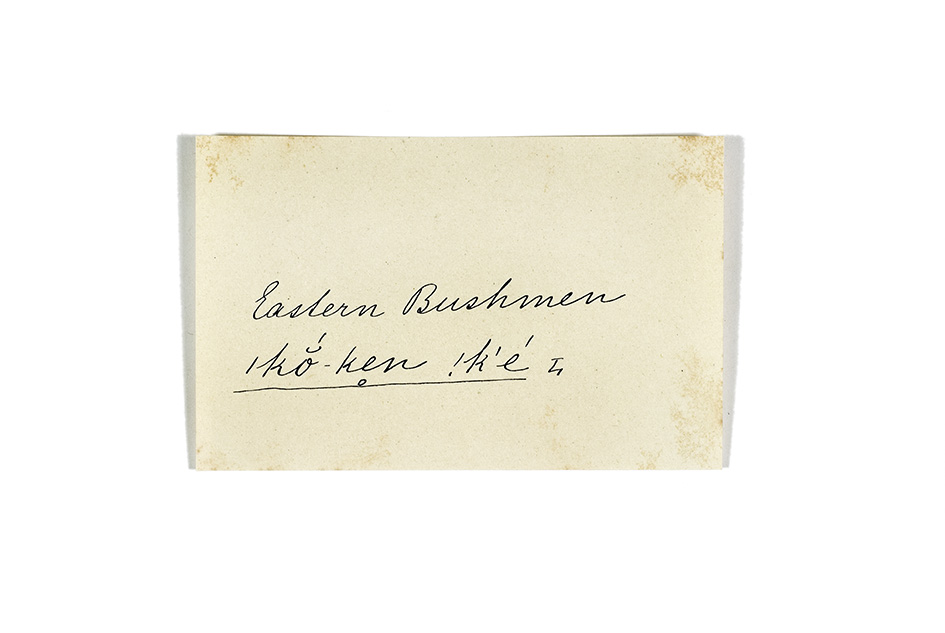 Eastern Bushmen
ǀkŏ́-kẹn ǃk'é